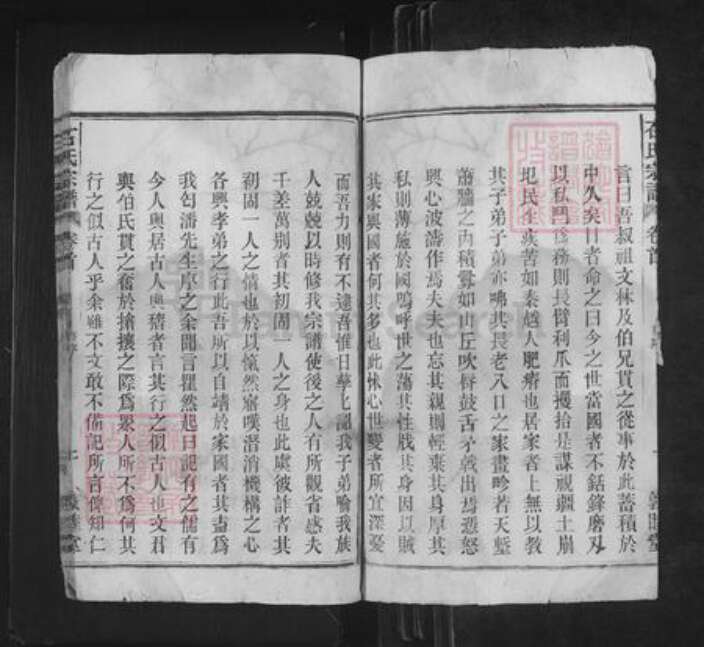 石氏宗譜 卷首
言曰吾叔祖文林及伯兄貫之從事於此蓄積於
中久矣日者命之曰今之世當國者不銛鋒磨刄
以私鬥為務則長臂利爪而攫拾是謀視疆土崩
圯民生疾苦如秦越人肥瘠也居家者上無以教
其子弟子弟亦咈其長老八口之家畫畛若天塹
蕭牆之內積釁如山丘吹脣鼓舌矛戟出焉忿怒
興心波濤作焉夫夫也忘其親則輕棄其身厚其
私則薄施於國嗚呼世之蕩其性戕其身因以賊
其家與國者何其多也此怵心世變者所宜深憂
而吾力則有不逮吾惟日孳孳詔我子弟喻我族
人兢兢以時修我宗譜使後之人有所觀省惑夫
千差萬別者其初固一人之身也此虞彼詐者其
初固一人之情也於以愾然寤嘆潛消機構之心
各興孝弟之行此吾所以自靖於家國者其盍為
我匄潘先生序之余聞言瞿然起曰記有之儒有
今人與居古人與稽者言其行之似古人也文君
與伯氏貫之奮於搶攘之際為眾人所不為何其
行之似古人乎余雖不文敢不備記所言俾知仁
石氏宗譜 卷首